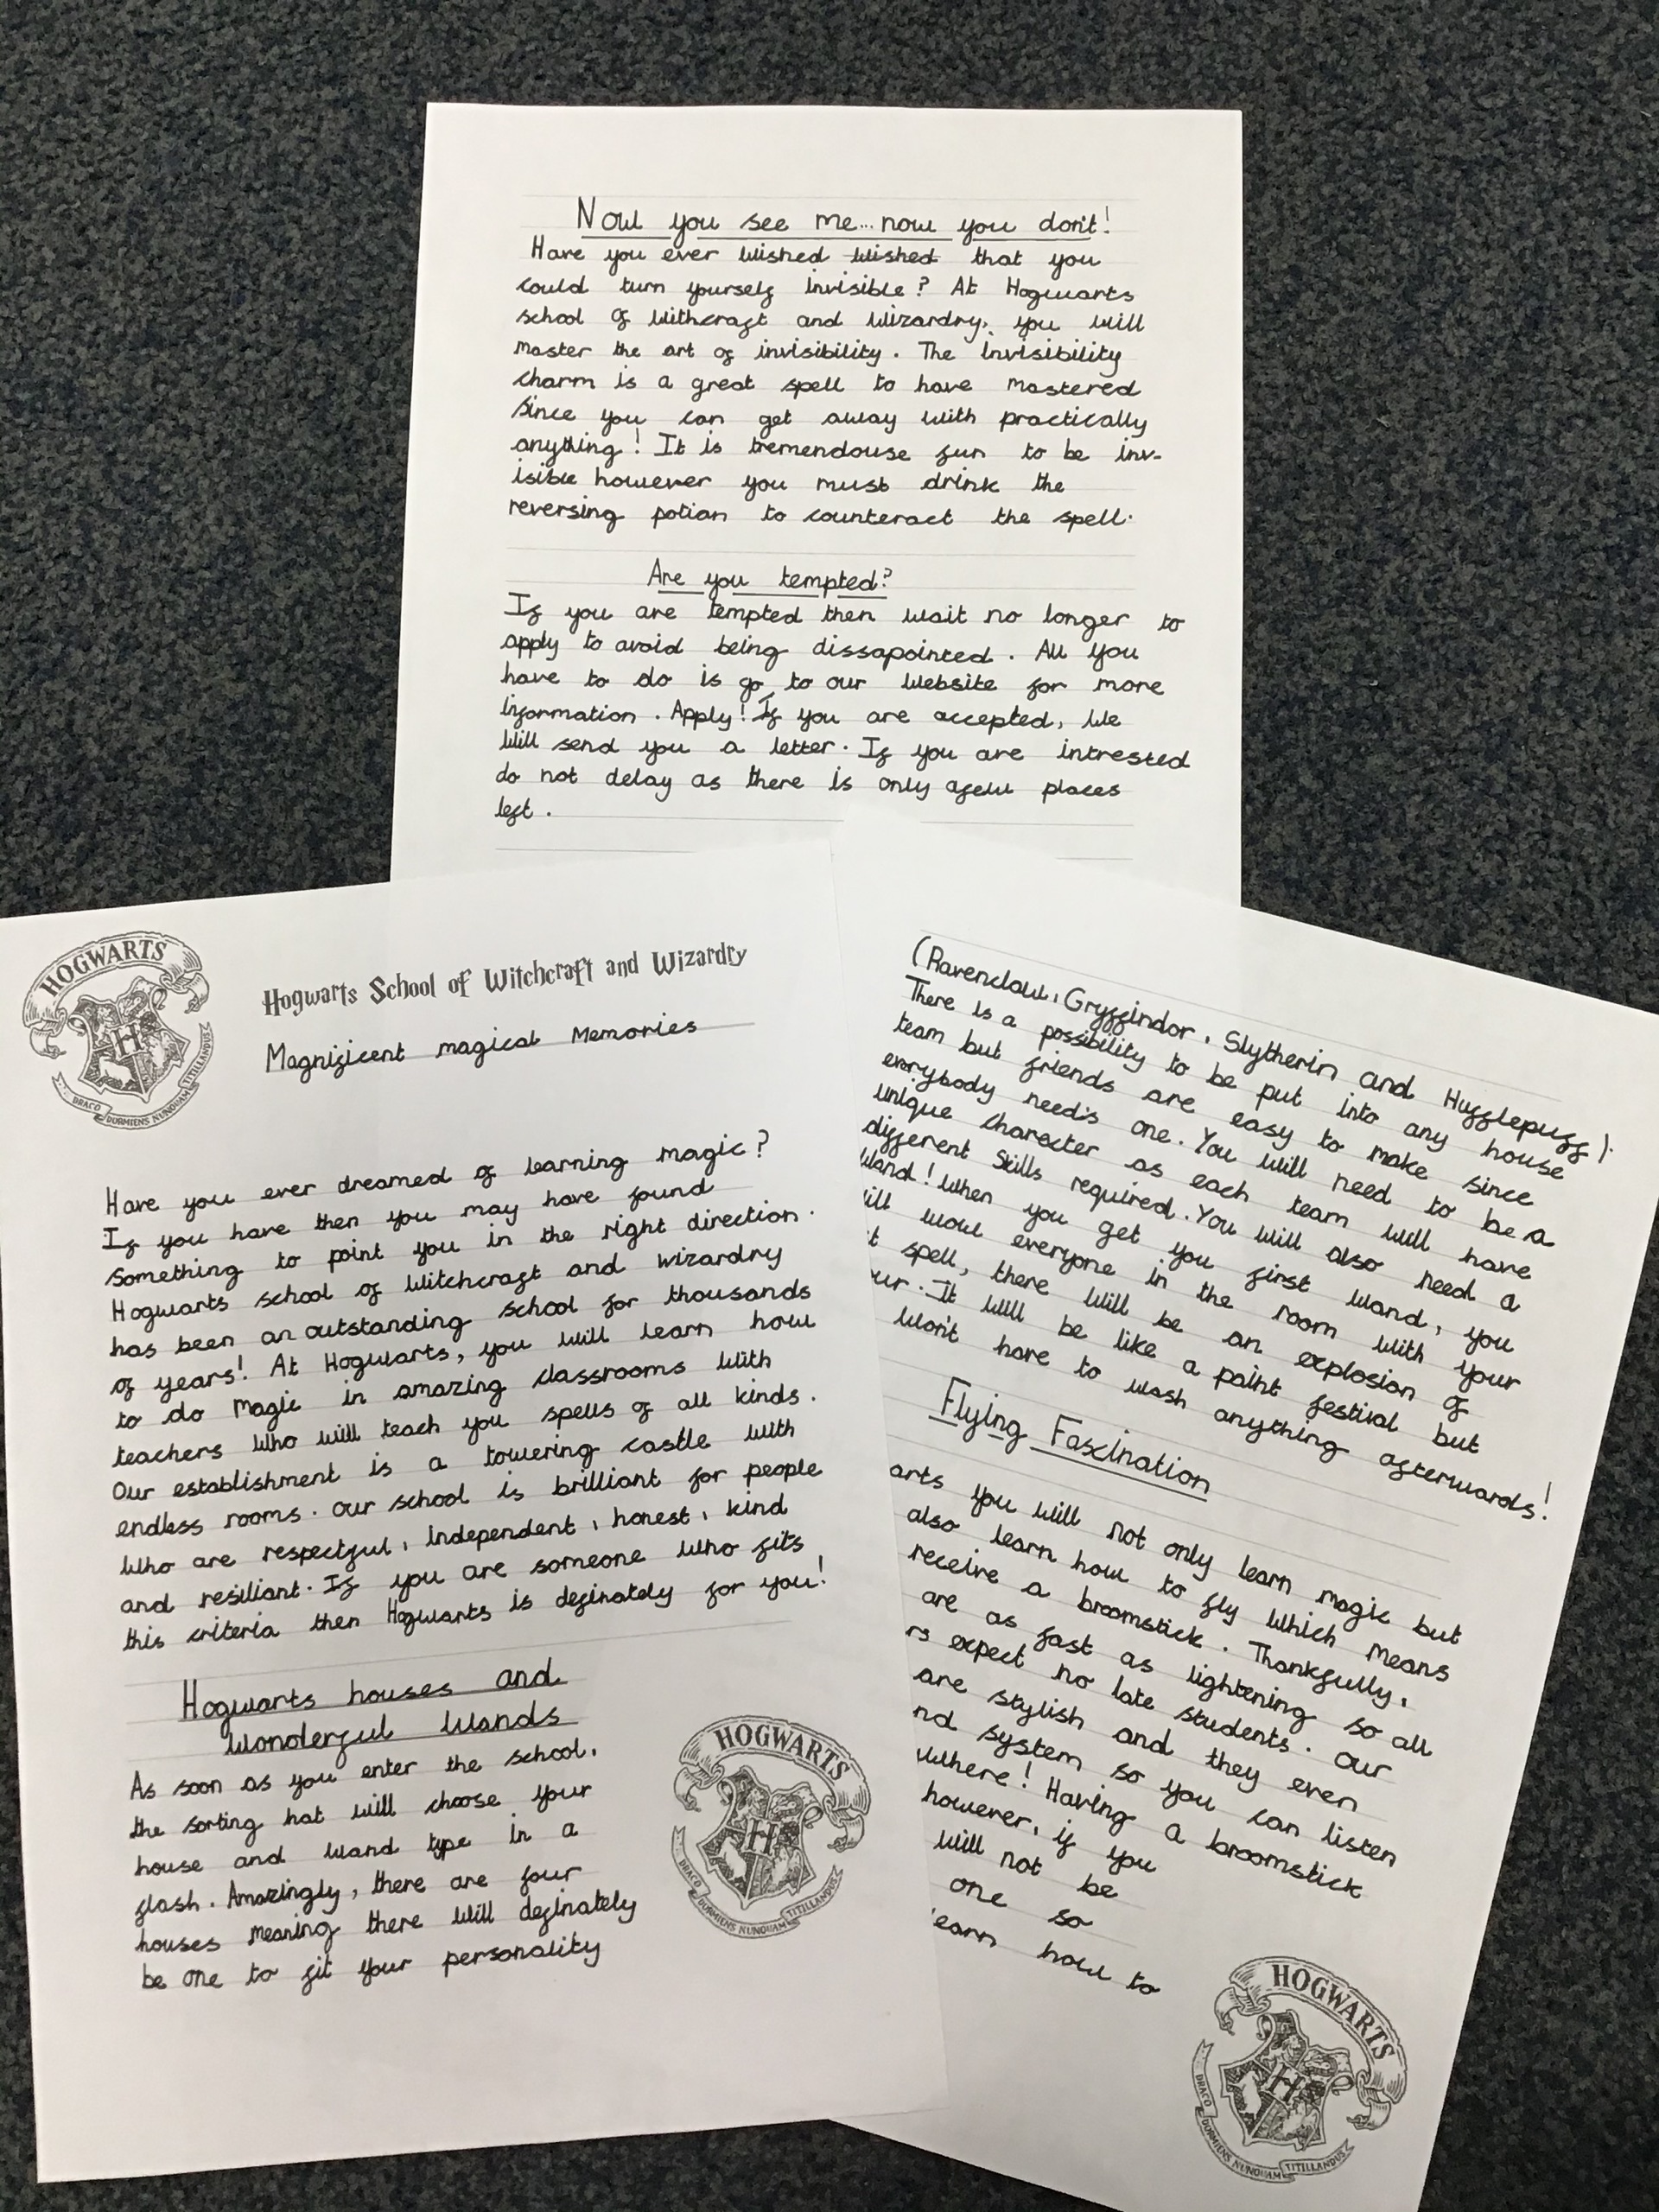 Now you see me...now you don't!
Have you ever wished wished that you
could turn yourself invisible? At Hogwarts
school of withcraft and wizardry, you will
master the art of invisibility. The invisibility
charm is a great spell to have mastered
since you can get away with practically
anything! It is tremendouse fun to be inv-
isible however you must drink the
reversing potian to counteract the spell.
Are you tempted?
If you are tempted then wait no longer to
apply to avoid being dissapointed. All you
have to do is go to our website for more
information. Apply! If you are accepted, we
will send you a letter. If you are intrested
do not delay as there is only afew places
left.
HOGWARTS
DRACO DORMIENS NUNQUAM TITILLANDUS
Hogwarts School of Witchcraft and Wizardry
Magnificent magical Memories
Have you ever dreamed of learning magic?
If you have then you may have found
something to point you in the right direction.
Hogwarts school of witchcraft and wizardry
has been an outstanding school for thousands
of years! At Hogwarts, you will learn how
to do magic in amazing classrooms with
teachers who will teach you spells of all kinds.
Our establishment is a towering castle with
endless rooms. Our school is brilliant for people
who are respectful, independent, honest, kind
and resiliant. If you are someone who fits
this criteria then Hogwarts is definately for you!
Hogwarts houses and
Wonderful Wands
As soon as you enter the school,
the sorting hat will choose your
house and wand type in a
flash. Amazingly, there are four
houses meaning there will definately
be one to fit your personality
HOGWARTS
DRACO DORMIENS NUNQUAM TITILLANDUS
(Ravenclaw, Gryffindor, Slytherin and Hufflepuff).
There is a possibility to be put into any house
team but friends are easy to make since
everybody needs one. You will need to be a
unique character as each team will have
different skills required. You will also need a
wand! When you get you first wand, you
ill wow everyone in the room with your
t spell, there will be an explosion of
ur. It will be like a paint festival but
won't have to wash anything afterwards!
Flying Fascination
arts you will not only learn magic but
also learn how to fly which means
receive a broomstick. Thankfully,
are as fast as lightening so all
rs expect no late students. Our
are stylish and they even
nd system so you can listen
where! Having a broomstick
however, if you
will not be
one so
earn how to
HOGWARTS
DRACO DORMIENS NUNQUAM TITILLANDUS